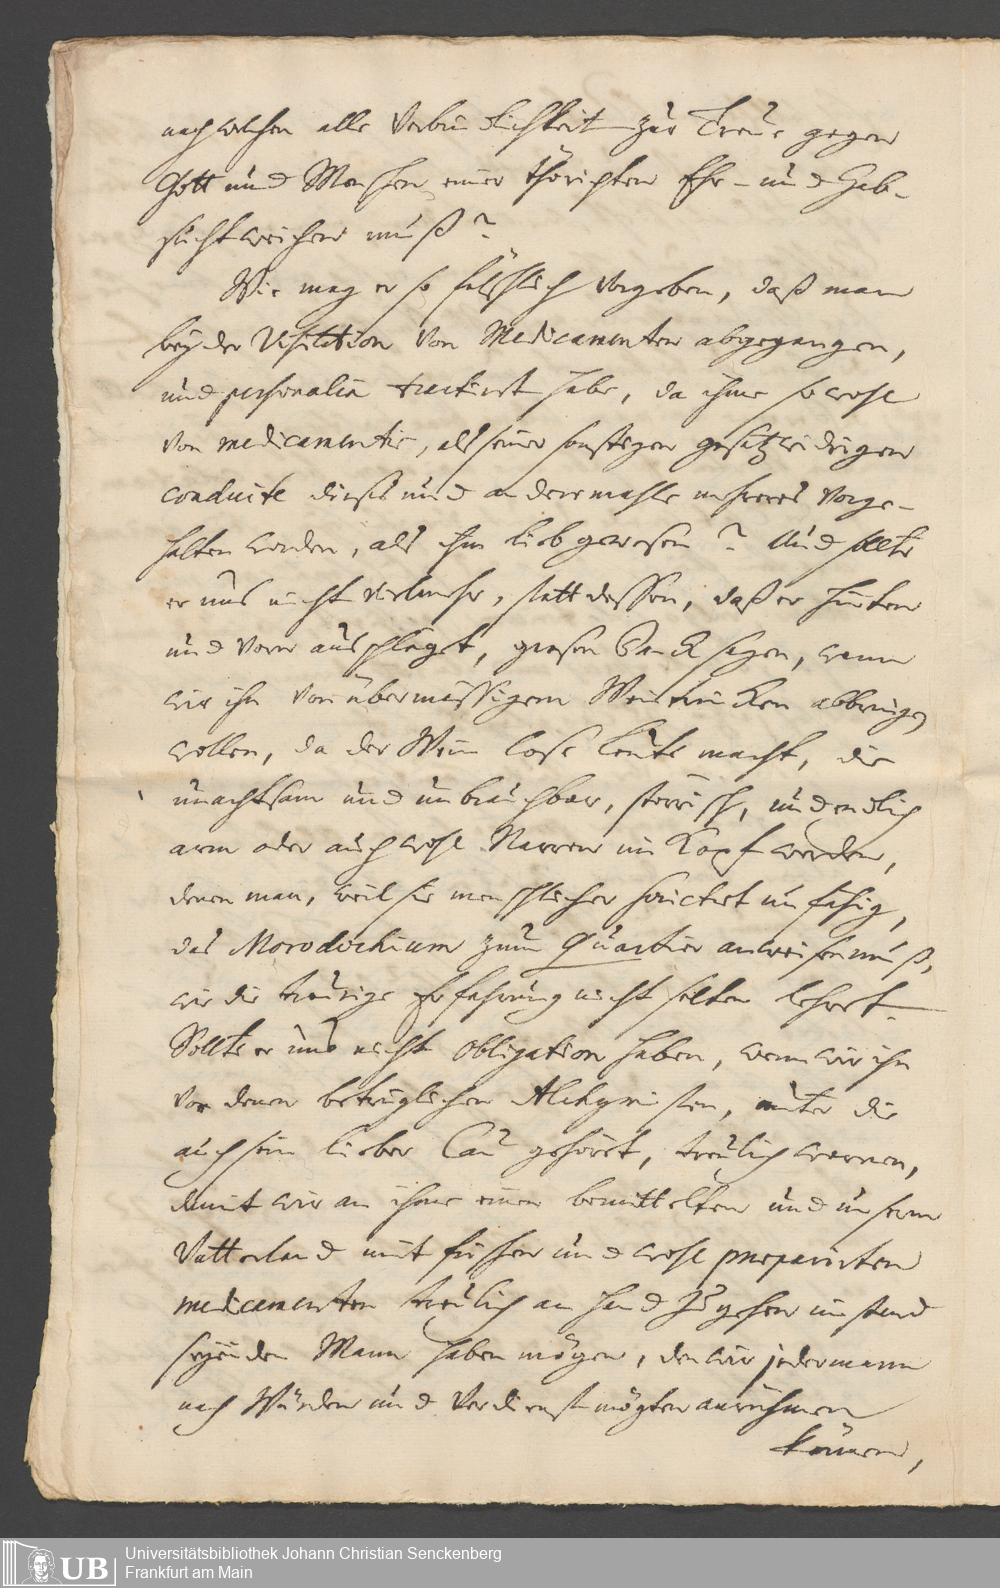 nach welchen alle Verbindlichkeit zur Treue gegen
Gott und Menschen einer thörichten Ehr- und Hab-
sucht weichen muß?
Wie mag er so fälschlich vorgeben, daß man
bey der Visitation von Medicamenten abgegangen,
und personalia tractirt habe, da ihme so wohl
von medicamentis, als seiner sonstigen gesetzwidrigen
conduite dieses und andere mahle mehreres vorge-
halten worden, als ihm lieb gewesen? Und sollte
er uns nicht vielmehr, statt dessen, daß er hinten
und vorn ausschläget, grosen Danck sagen, wann
wir ihn von übermässigem Weintrincken abbringen
wollen, da der Wein lose Leute macht, die
unachtsam und unbrauchbar, störrisch, und endlich
arm oder auch wohl Narren im Kopf werden,
denen man, weil sie menschlicher societet unfähig,
das Morodochium zum Quartier anweisen muß,
wie die traurige Erfahrung nicht selten lehret.
Sollte er uns nicht obligation haben, wenn wir ihn
vor denen betrüglichen Alchymisten, unter die
auch sein lieber Cau gehöret, treulich warnen,
damit wir an ihme einen bemittelten und unserm
Vatterland mit frischen und wohl praeparirten
medicamenten treulich an Hand zu gehen im stand
seyenden Mann haben mögen, den wir jedermann
nach Würden und Verdienst mögten anrühmen
können,
Universitätsbibliothek Johann Christian Senckenberg
Frankfurt am Main
UB